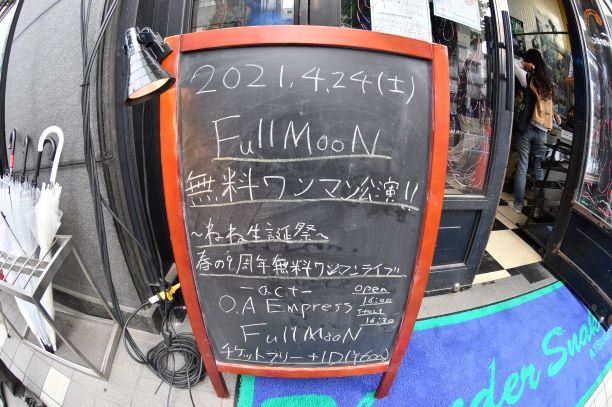 2021.4.24(土)
FullMooN
無料ワンマン公演!!
〜ねね生誕祭〜
春の1周年無料ワンマンライブ
-act-
open
16:00
O.A Empress
START
16:30
FullMooN
チケットフリー +1D(¥600)
nder Snake
ATSUG